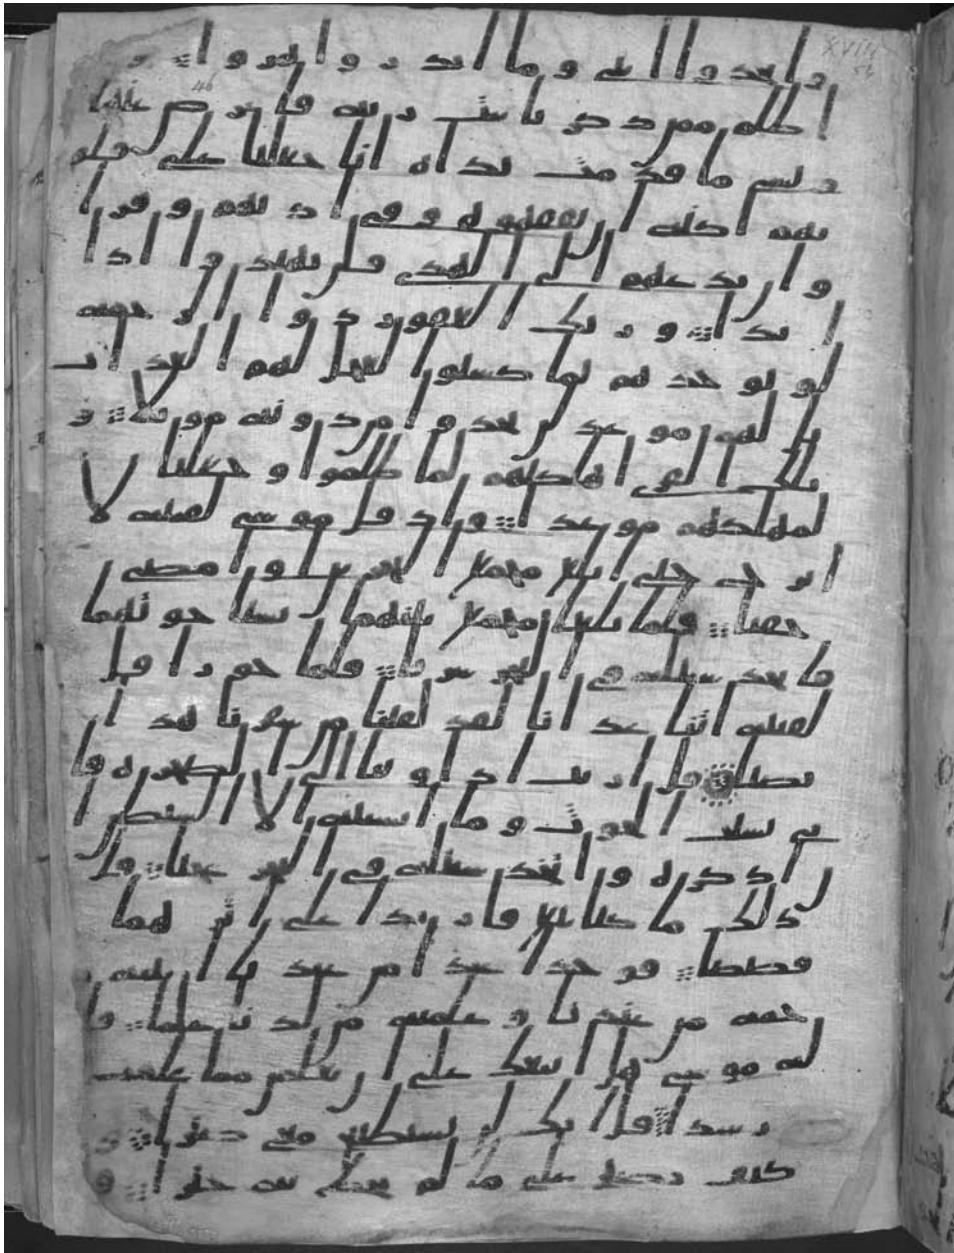 XVIII
56
46
واتخذوا ايتي وما انذروا هزوا و من
اظلم ممن ذكر بايت ربه فاعرض عنها
ونسي ما قدمت يداه انا جعلنا على قلو
بهم اكنة ان يفقهوه وفي اذنهم وقرا
وان تدعهم الى الهدى فلن يهتدوا اذا
ابدا وربك الغفور ذو الرحمة
لو يوخذهم بما كسبوا لعجل لهم العذاب
بل لهم موعد لن يجدوا من دونه موئلا و
تلك القرى اهلكنهم لما ظلموا وجعلنا
لمهلكهم موعدا واذ قل موسى لفتيه لا
ابرح حتى ابلغ مجمع البحرين او امضي
حقبا فلما بلغا مجمع بينهما نسيا حوتهما
فاتخذ سبيله في البحر سربا فلما جوزا قل
لفتيه اتنا غدانا لقد لقينا من سفرنا هذا
نصبا قل اريت اذ اوينا الى الصخرة فا
ني نسيت الحوت وما انسنيه الا الشيطن
ان اذكره واتخذ سبيله في البحر عجبا قل
ذلك ما كنا نبغ فارتدا على اثرهما
قصصا فوجدا عبدا من عبدنا اتينه
رحمة من عندنا وعلمنه من لدنا علما قل
له موسى هل اتبعك على ان تعلمن مما علمت
رشدا قل انك لن تستطيع معي صبرا و
كيف تصبر على ما لم تحط به خبرا ق